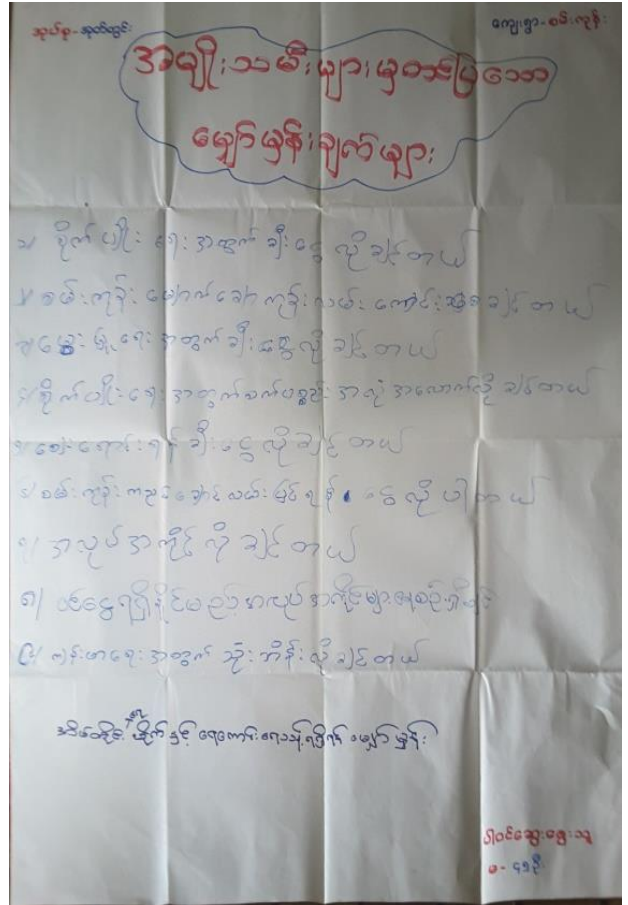 အုပ်စု-အုတ်တွင်း
ကျေးရွာ-စမ်းကုန်း
အမျိုးသမီးများမှတင်ပြသော
မျှော်မှန်းချက်များ
၁/ စိုက်ပျိုးရေးအတွက် ချီးငွေလိုချင်တယ်
၂/ စမ်းကုန်း မြောက်ချောကုန်းလမ်းကောင်းချင်တယ်
၃/ မွေးမြူရေးအတွက်ချီးငွေလိုချင်တယ်
၄/ စိုက်ပျိုးရေးအတွက်စက်ပစ္စည်းအလုံအလောက်လိုချင်တယ်
၅/ ဈေးရောင်းရန်ချီးငွေလိုချင်တယ်
၆/ စမ်းကုန်း ချောင်းလမ်းမြှင့်ရန် ငွေလိုပါတယ်
၇/ အလုပ်အကိုင်လိုချင်တယ်
၈/ ဝင်ငွေရရှိနိုင်မည့်အလုပ်အကိုင်များအစဉ်ရှိချင်
၉/ ကျန်းမာရေးအတွက် သုံးဘိန်းလိုချင်တယ်
အိမ်တိုင်းကိုယ်စိုက်နှင့်ရေကောင်းရေသန့်ရရှိရန်မျှော်မှန်း
ပါဝင်ဆွေးနွေးသူ
မ-၄၅ဦး